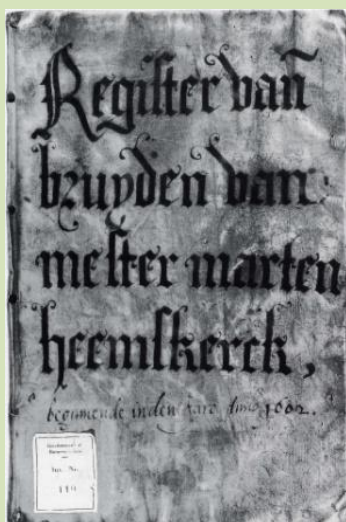 Register van
bruyden van
mester marten
heemskerck,
beginnende inden Jare Anno 1602.
Inv. Nr.